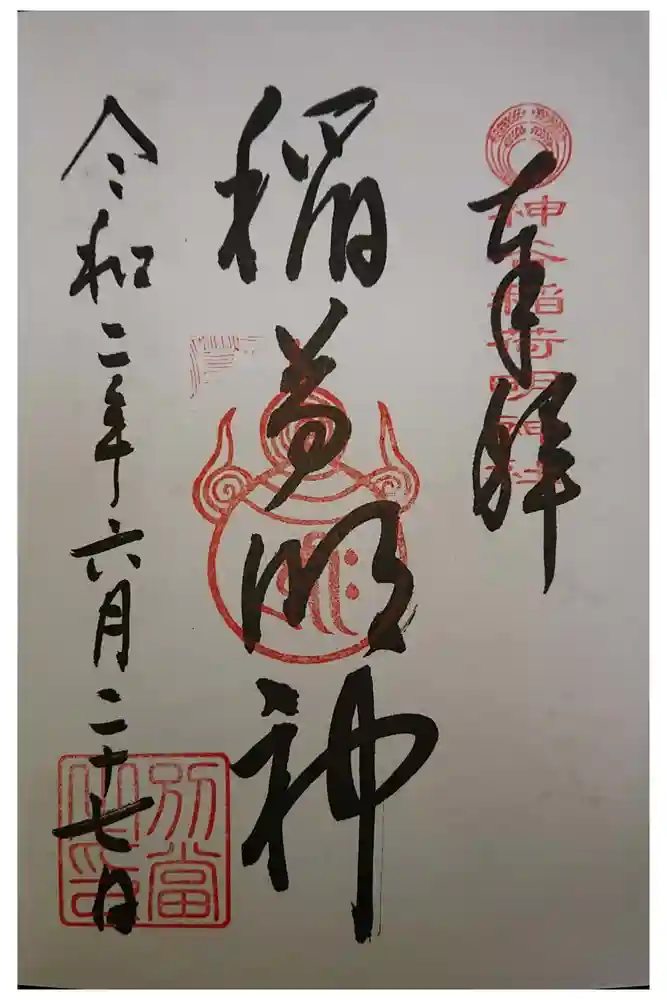 奉拝
神谷稲荷明神社
稲荷明神
令和二年六月二十七日
別當